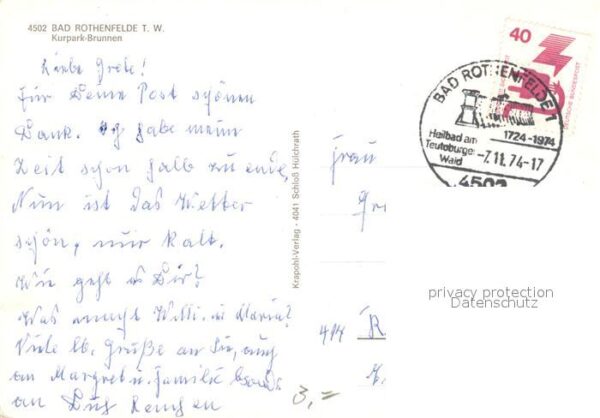 4502 BAD ROTHENFELDE T. W.
Kurpark-Brunnen
Liebe Grete!
Für Deine Post schönen
Dank. Ich habe meine
Zeit schon halb zu ende,
Nun ist das Wetter
schön, nur kalt.
Wie geht es Dir?
Was macht Willi u Maria?
Viele lb. Grüße an Sie, auch
an Margret u. Familie besonders
an Dich
Krapohl-Verlag - 4041 Schloß Hülchrath
40
DEUTSCHE BUNDESPOST
BAD ROTHENFELDE T
1724-1974
Heilbad am
Teutoburger
Wald
-7.11.74-17
4502
Frau
privacy protection
Datenschutz
3,=